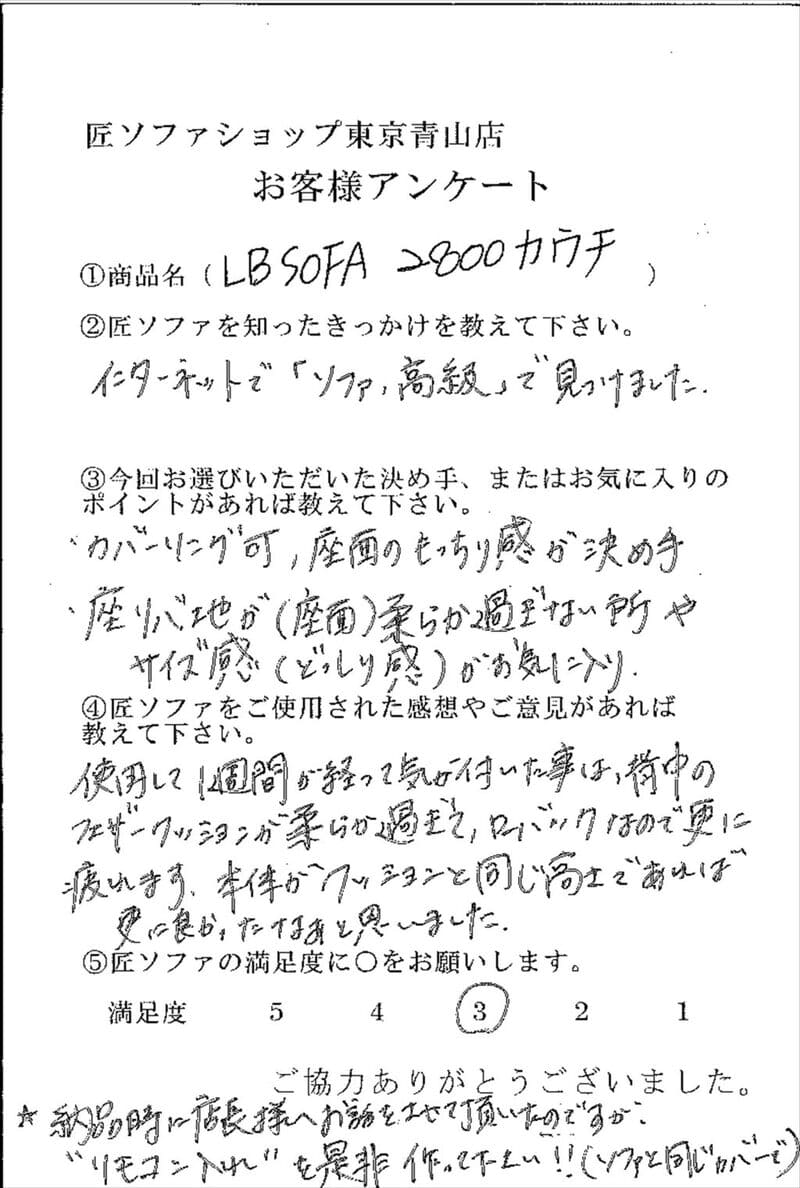 匠ソファショップ東京青山店
お客様アンケート
①商品名（LBSOFA 2800カウチ）
②匠ソファを知ったきっかけを教えて下さい。
インターネットで「ソファ,高級」で見つけました.
③今回お選びいただいた決め手、またはお気に入りの
ポイントがあれば教えて下さい。
・カバーリング可,座面のもっちり感が決め手
・座り心地が(座面)柔らか過ぎない所や
サイズ感(どっしり感)がお気に入り.
④匠ソファをご使用された感想やご意見があれば
教えて下さい。
使用して1週間が経って気が付いた事は,背中の
フェザークッションが柔らか過ぎて,ローバックなので更に
疲れます.本体がクッションと同じ高さであれば
更に良かったなぁと思いました.
⑤匠ソファの満足度に〇をお願いします。
満足度 5 4 3 2 1
ご協力ありがとうございました。
☆納品時に店長様へお話をさせて頂いたのですが,
"リモコン入れ"を是非作って下さい!!(ソファと同じカバーで)